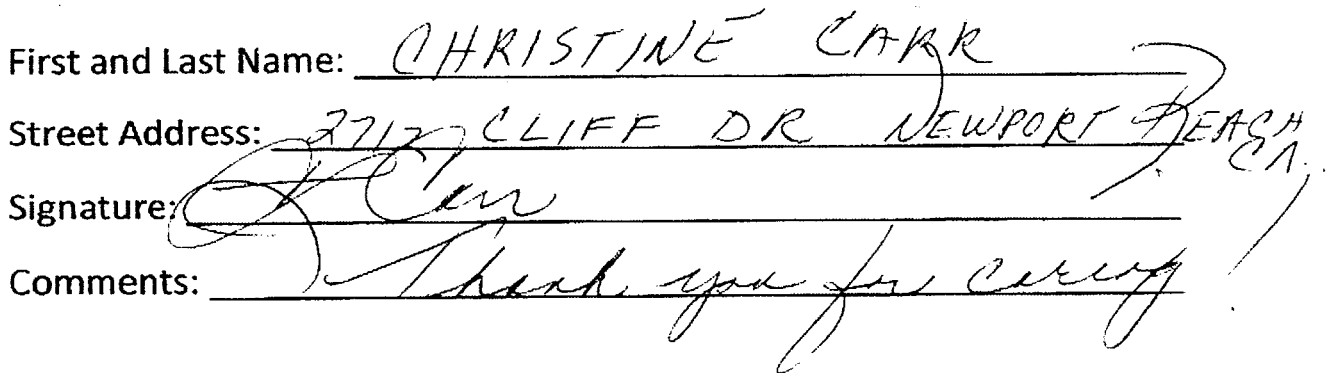 First and Last Name: CHRISTINE CARR
Street Address: 2717 CLIFF DR NEWPORT BEACH
CA.
Signature: Carr
Comments: Thank you for caring!